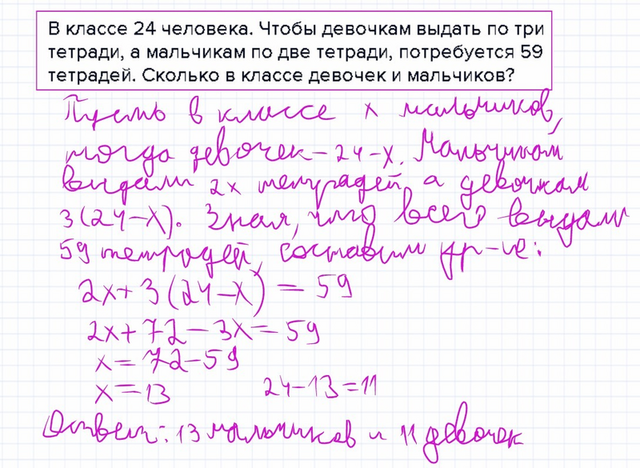 В классе 24 человека. Чтобы девочкам выдать по три
тетради, а мальчикам по две тетради, потребуется 59
тетрадей. Сколько в классе девочек и мальчиков?
Пусть в классе x мальчиков,
тогда девочек – 24-x. Мальчикам
выдали 2x тетрадей, а девочкам
3(24-x). Зная, что всего выдали
59 тетрадей, составим ур-ие:
2x+3(24-x)=59
2x+72-3x=59
x=72-59
x=13 24-13=11
Ответ: 13 мальчиков и 11 девочек